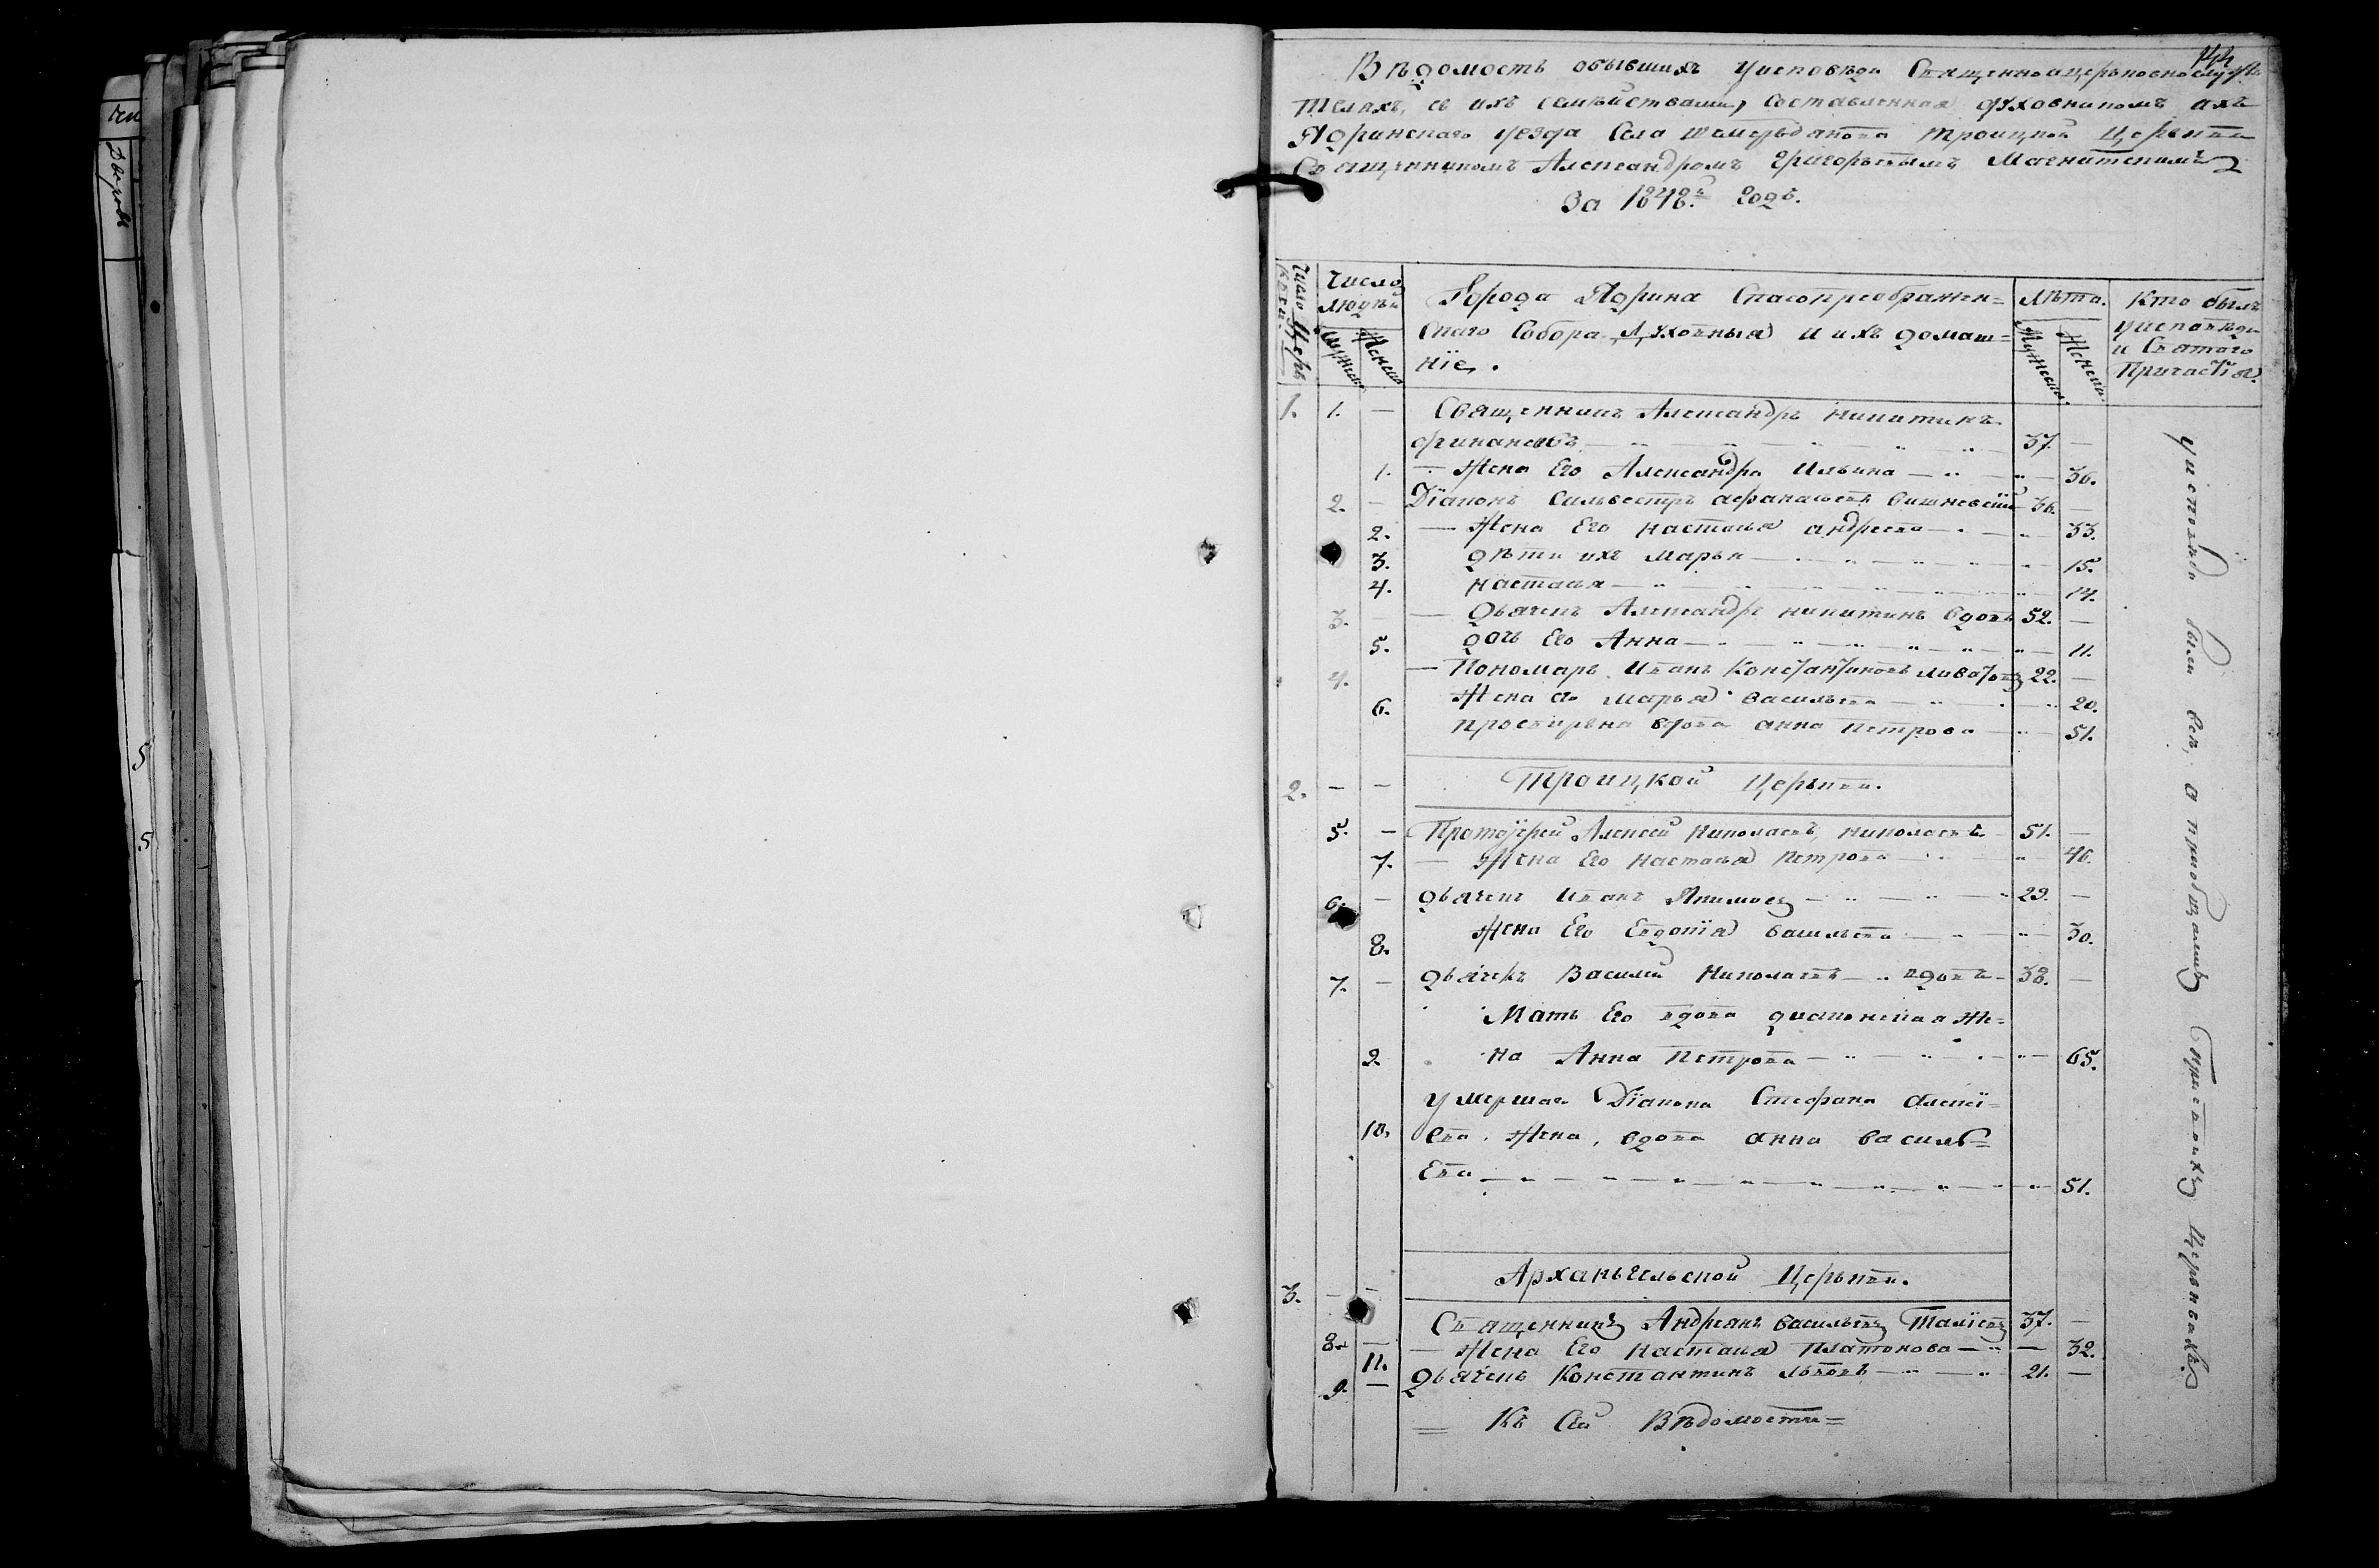 Вѣдомость обывшихъ Уисповѣди Священноицерковнослужи
теляхъ, съ ихъ семѣйствами, составленная духовникомъ ихъ
Ядринскаго уезда Села Троицкой Церькви
Священникомъ Александромъ Григорьевымъ Магнитскимъ
За 1848.й годъ.
Число Церь
квей.
Число
людѣй
Мужеск.
Женска.
Города Ядрина Спасопреображен=
скаго Собора Духовныя и ихъ домаш=
нїе.
Лѣта.
Мужеска.
Женска.
Кто былъ
уисповѣди
и Святаго
Причастїя.
1. 1. — Священникъ Александръ Никитинъ
37. —
1. — Жена Его Александра Ильина — 36.
2. — Дїаконъ Сильвестръ Афанасьевъ Вишневскїй 36. —
2. — Жена Его Настасья Андреева — 33.
3. дѣти ихъ Марья — 15.
4. Настасья —
3. — Дьячекъ Александръ Никитинъ вдовъ 52. —
5. дочь Его Анна — 11.
4. — Пономарь Иванъ Константиновъ 22. —
6. Жена его Марья Васильева — 20.
просвирьня вдова Анна Петрова — 51.
2. — — Троицкой Церькви.
5. — Протоїерей Алексей Николаевъ, Николаевъ 51. —
7. — Жена Его Настасья Петрова 46.
6. — Дьячекъ Иванъ Якимовъ — 29. —
8. Жена Его Евдокїя Васильева — 30.
7. — Дьячекъ Василий Николаевъ — вдовъ — 38. —
Мать Его вдова диаконская Же=
9. на Анна Петрова — 65.
умершаго Дїакона Стефана Алексї=
10. ева Жена, вдова Анна Василь=
Ева — 51.
3. — — Арханьгельской Церькви.
8. — Священникъ Андреанъ Васильевъ Талїевъ 37. —
11. — Жена Его Настасья Платонова — 32.
9. — Дьячекъ Константинъ Львовъ — 21. —
= Къ Сей Вѣдомости =
Уисповѣди были всѣ, а приобщались при своихъ Церьквахъ